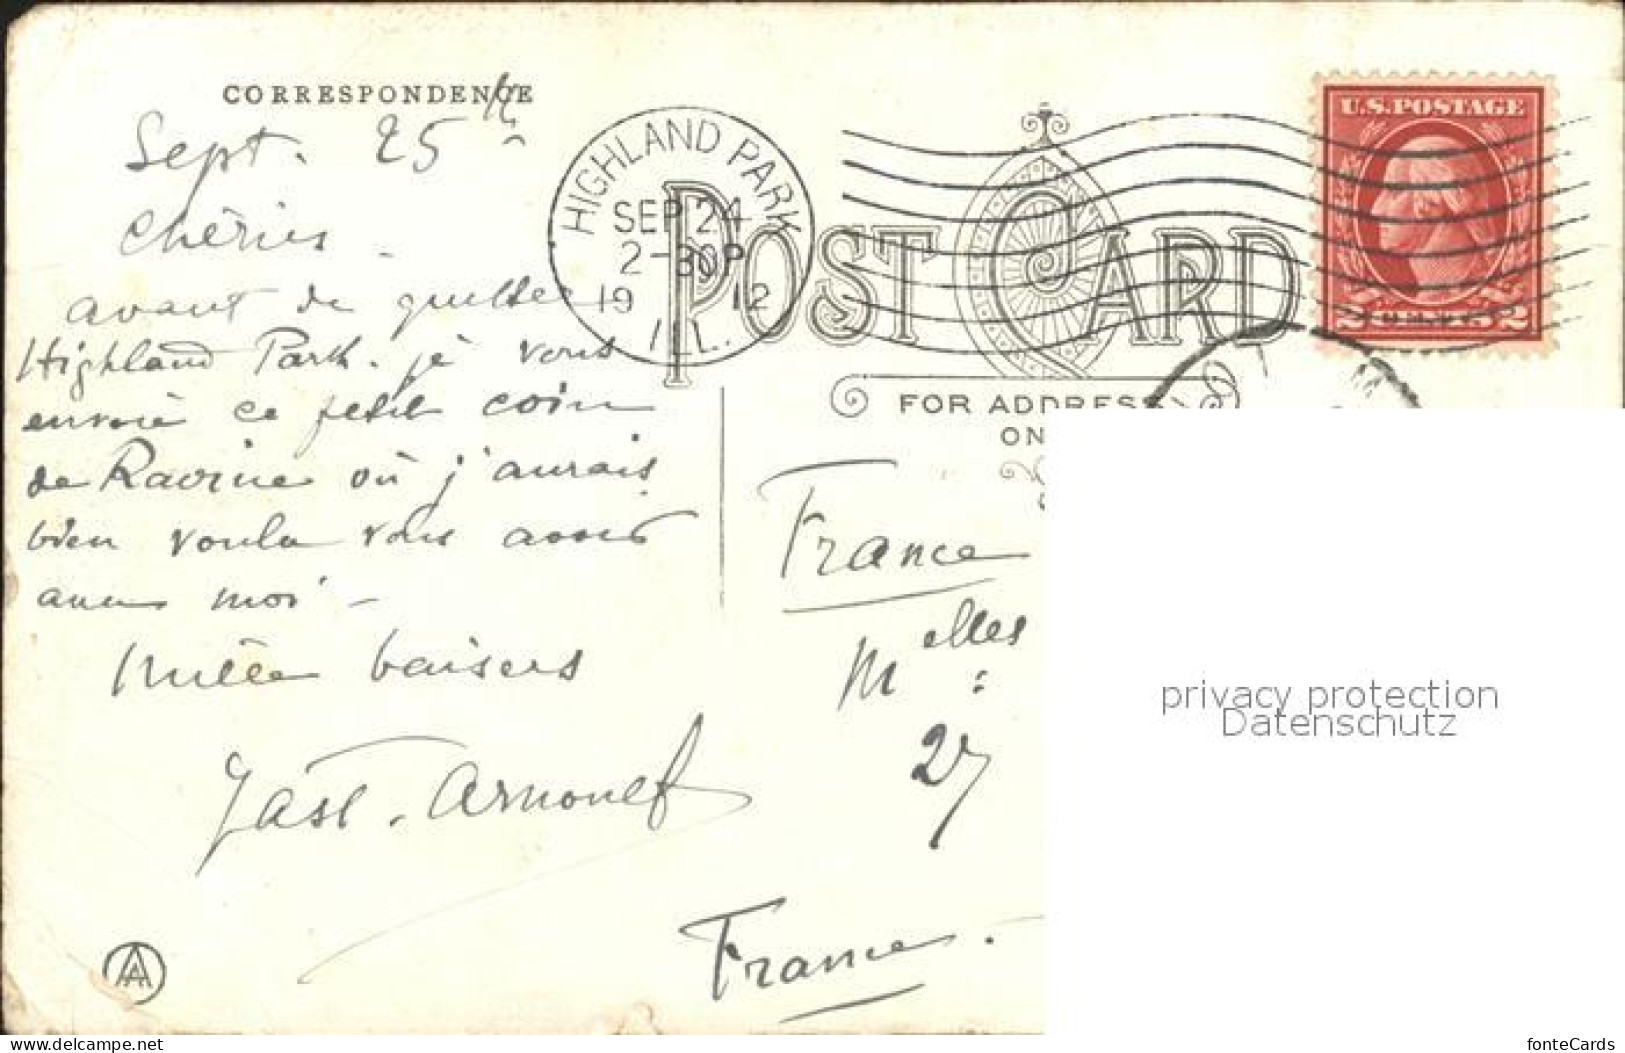 CORRESPONDENCE
Sept. 25th
Chéries
avant de quitter
Highland Park. je vous
envoie ce petit coin
de Ravine où j'aurais
bien voulu vous avoir
avec moi -
Mille baisers
HIGHLAND PARK
SEP 24
2-30P
1912
ILL.
POST CARD
FOR ADDRESS
ON
U.S.POSTAGE
2 CENTS 2
France
Melles
27
France.
privacy protection
Datenschutz
the-best-in.net
fonteCards